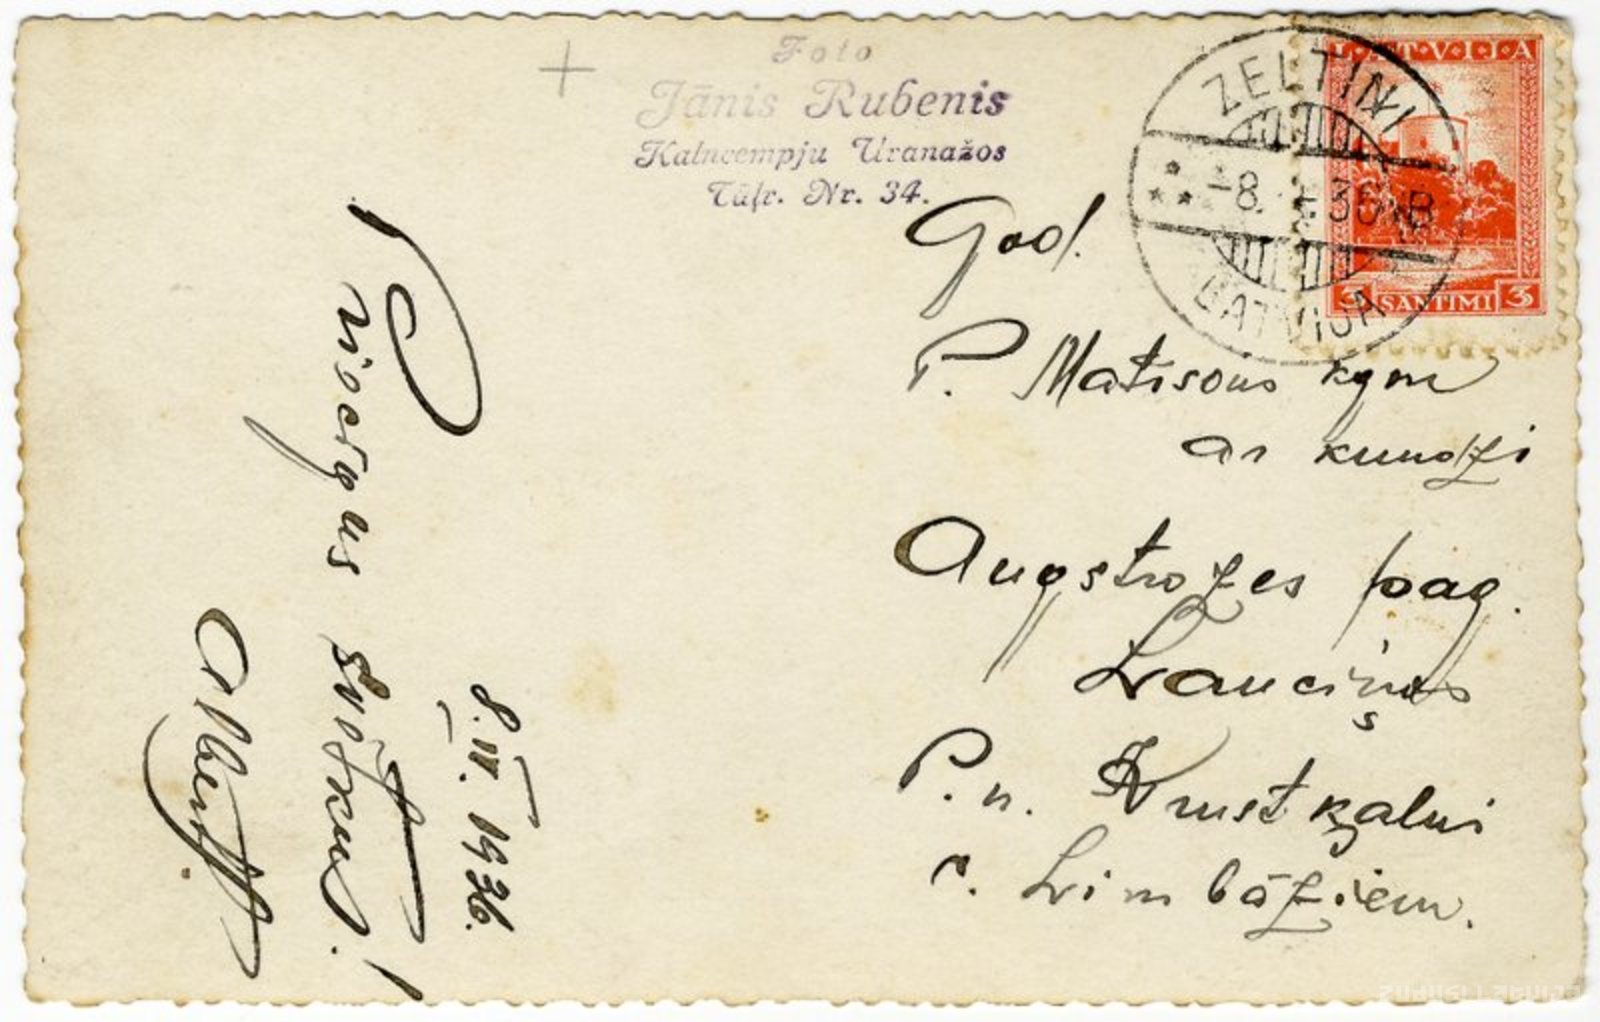 Foto
Jānis Rubenis
Kalncempju Uranažos
Tāļr. Nr. 34.
ZELTIŅI
-8. 36 B
LATVIJA
LATVIJA
3 SANTIMI 3
God.
P. Matisons kgm
ar kundzi
Augstrozes pag.
Lauciņos
P. n. Krustkalni
c. Limbāžiem.
Priecīgus
svētkus!
8. IV. 1936.
zudusilatvija